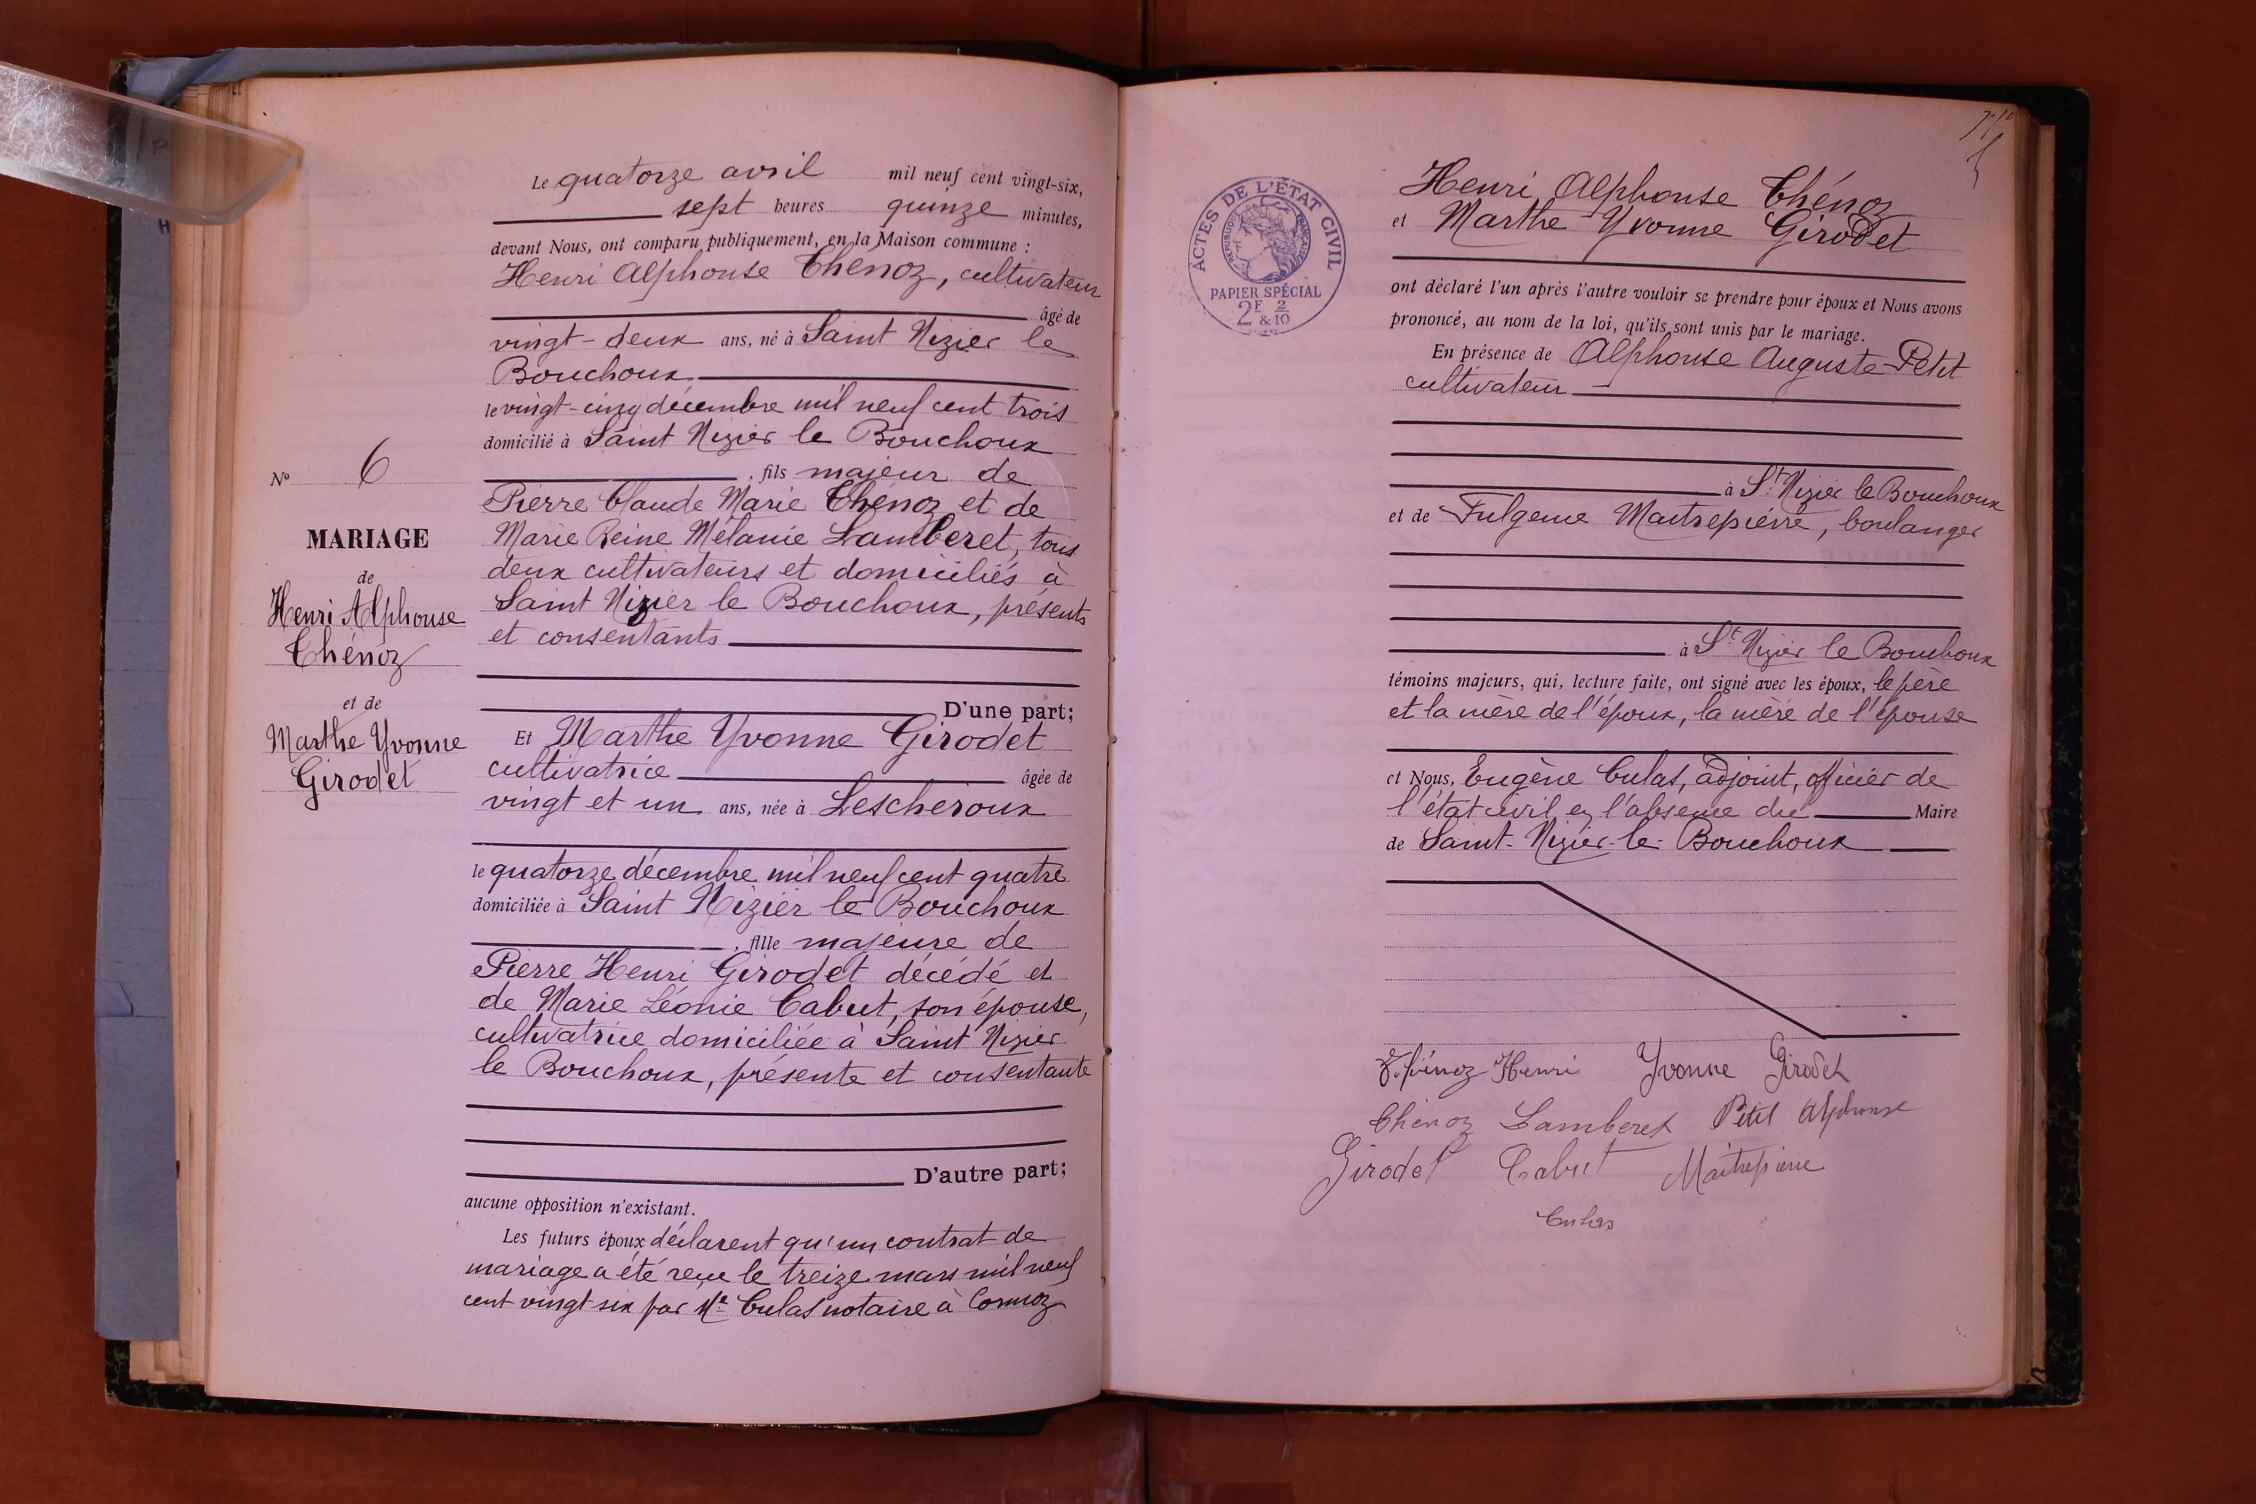 Le quatorze avril mil neuf cent vingt-six,
sept heures quinze minutes,
devant Nous, ont comparu publiquement, en la Maison commune :
Henri Alphonse Thénoz, cultivateur
âgé de
vingt-deux ans, né à Saint Nizier le
Bouchoux
le vingt-cinq décembre mil neuf cent trois
domicilié à Saint Nizier le Bouchoux
, fils majeur de
Pierre Claude Marie Thénoz et de
Marie Reine Mélanie Lamberet, tous
deux cultivateurs et domiciliés à
Saint Nizier le Bouchoux, présents
et consentants
D'une part;
Et Marthe Yvonne Girodet
cultivatrice âgée de
vingt et un ans, née à Lescheroux
le quatorze décembre mil neuf cent quatre
domiciliée à Saint Nizier le Bouchoux
, fille majeure de
Pierre Henri Girodet décédé et
de Marie Léonie Cabut, son épouse,
cultivatrice domiciliée à Saint Nizier
le Bouchoux, présente et consentante
D'autre part;
aucune opposition n'existant.
Les futurs époux déclarent qu'un contrat de
mariage a été reçu le treize mars mil neuf
cent vingt six par Me Culas notaire à Cormoz
No 6
MARIAGE
de
Henri Alphonse
Thénoz
et de
Marthe Yvonne
Girodet
ACTES DE L'ÉTAT CIVIL
PAPIER SPÉCIAL
2F 2
& 10
Henri Alphonse Thénoz
et Marthe Yvonne Girodet
ont déclaré l'un après l'autre vouloir se prendre pour époux et Nous avons
prononcé, au nom de la loi, qu'ils sont unis par le mariage.
En présence de Alphonse Auguste Petit
cultivateur
à St Nizier le Bouchoux
et de Fulgence Maitrepierre, boulanger
à St Nizier le Bouchoux
témoins majeurs, qui, lecture faite, ont signé avec les époux, le père
et la mère de l'époux, la mère de l'épouse
et Nous, Eugène Culas, adjoint, officier de
l'état civil en l'absence du Maire
de Saint-Nizier-le-Bouchoux
Thénoz Henri Yvonne Girodet
Thénoz Lamberet Petit Alphonse
Girodet Cabut Maitrepierre
Culas